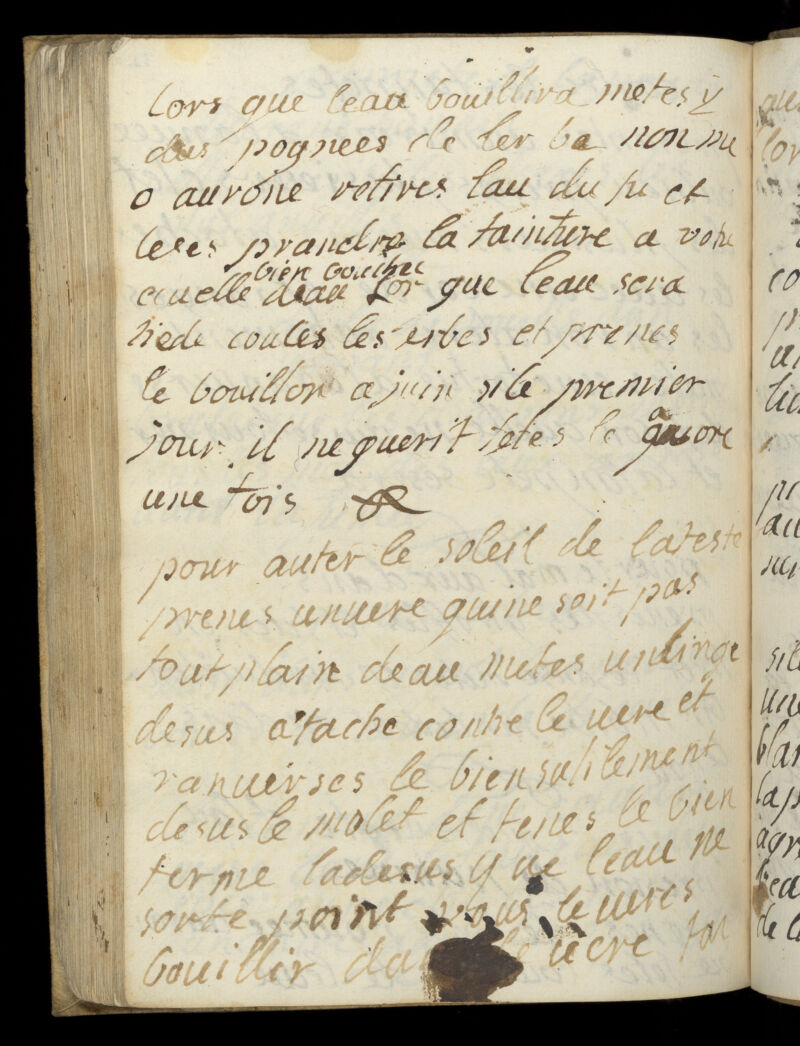 lors que leau bouillira metes y
dus pognees de ler ba non me
o aurone retires lau du fu et
leses prandre la tainture a votre
bien bouchee
ecuelle deau Lor que leau sera
tiede coules les erbes et prenes
le bouillon a juin sile premier
jour il ne guerit fetes le ancore
une fois
pour auter le soleil de lateste
prenes unuere quine soit pas
tout plain deau metes unlinge
desus atache contre le uere et
ranuerses le bien sutilement
desus le molet et tenes le bien
ferme ladesus que leau ne
sorte point vous le veres
bouillir le uere